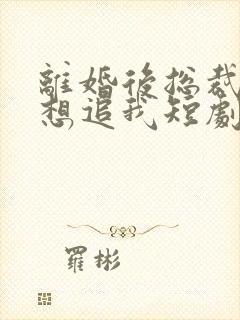 離婚後總裁
想追我短劇
羅彬